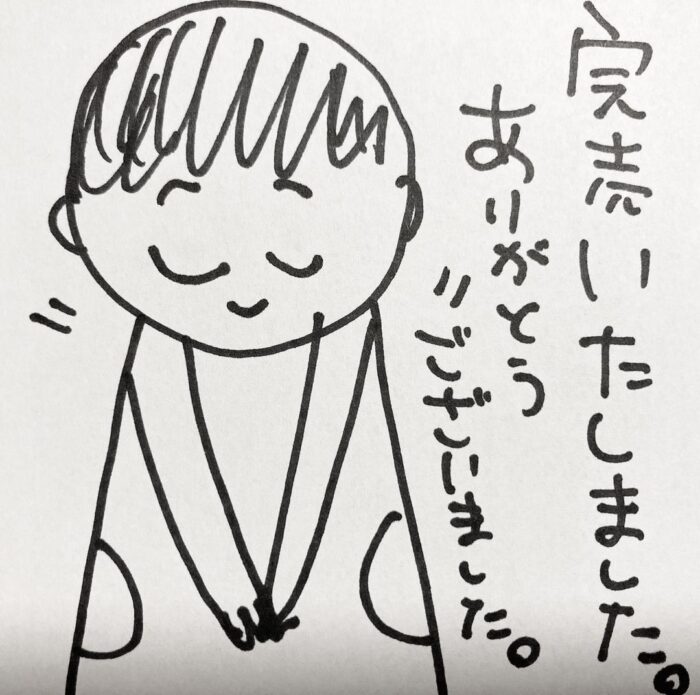 完売いたしました。
ありがとう
ございました。